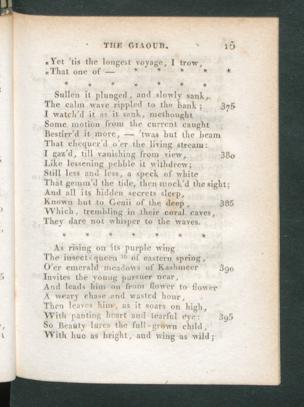 THE GIAOUR. 15
Yet 'tis the longest voyage, I trow,
That one of — * * * * *
* * * * * * *
Sullen it plunged, and slowly sank,
The calm wave rippled to the bank; 375
I watch'd it as it sank, methought
Some motion from the current caught
Bestirr'd it more, — 'twas but the beam
That chequer'd o'er the living stream:
I gaz'd, till vanishing from view, 380
Like lessening pebble it withdrew;
Still less and less, a speck of white
That gemm'd the tide, then mock'd the sight;
And all its hidden secrets sleep,
Known but to Genii of the deep, 385
Which, trembling in their coral caves,
They dare not whisper to the waves.
* * * * * * *
As rising on its purple wing
The insect-queen 16 of eastern spring,
O'er emerald meadows of Kashmeer 390
Invites the young pursuer near,
And leads him on from flower to flower
A weary chase and wasted hour,
Then leaves him, as it soars on high,
With panting heart and tearful eye: 395
So Beauty lures the full-grown child,
With hue as bright, and wing as wild;